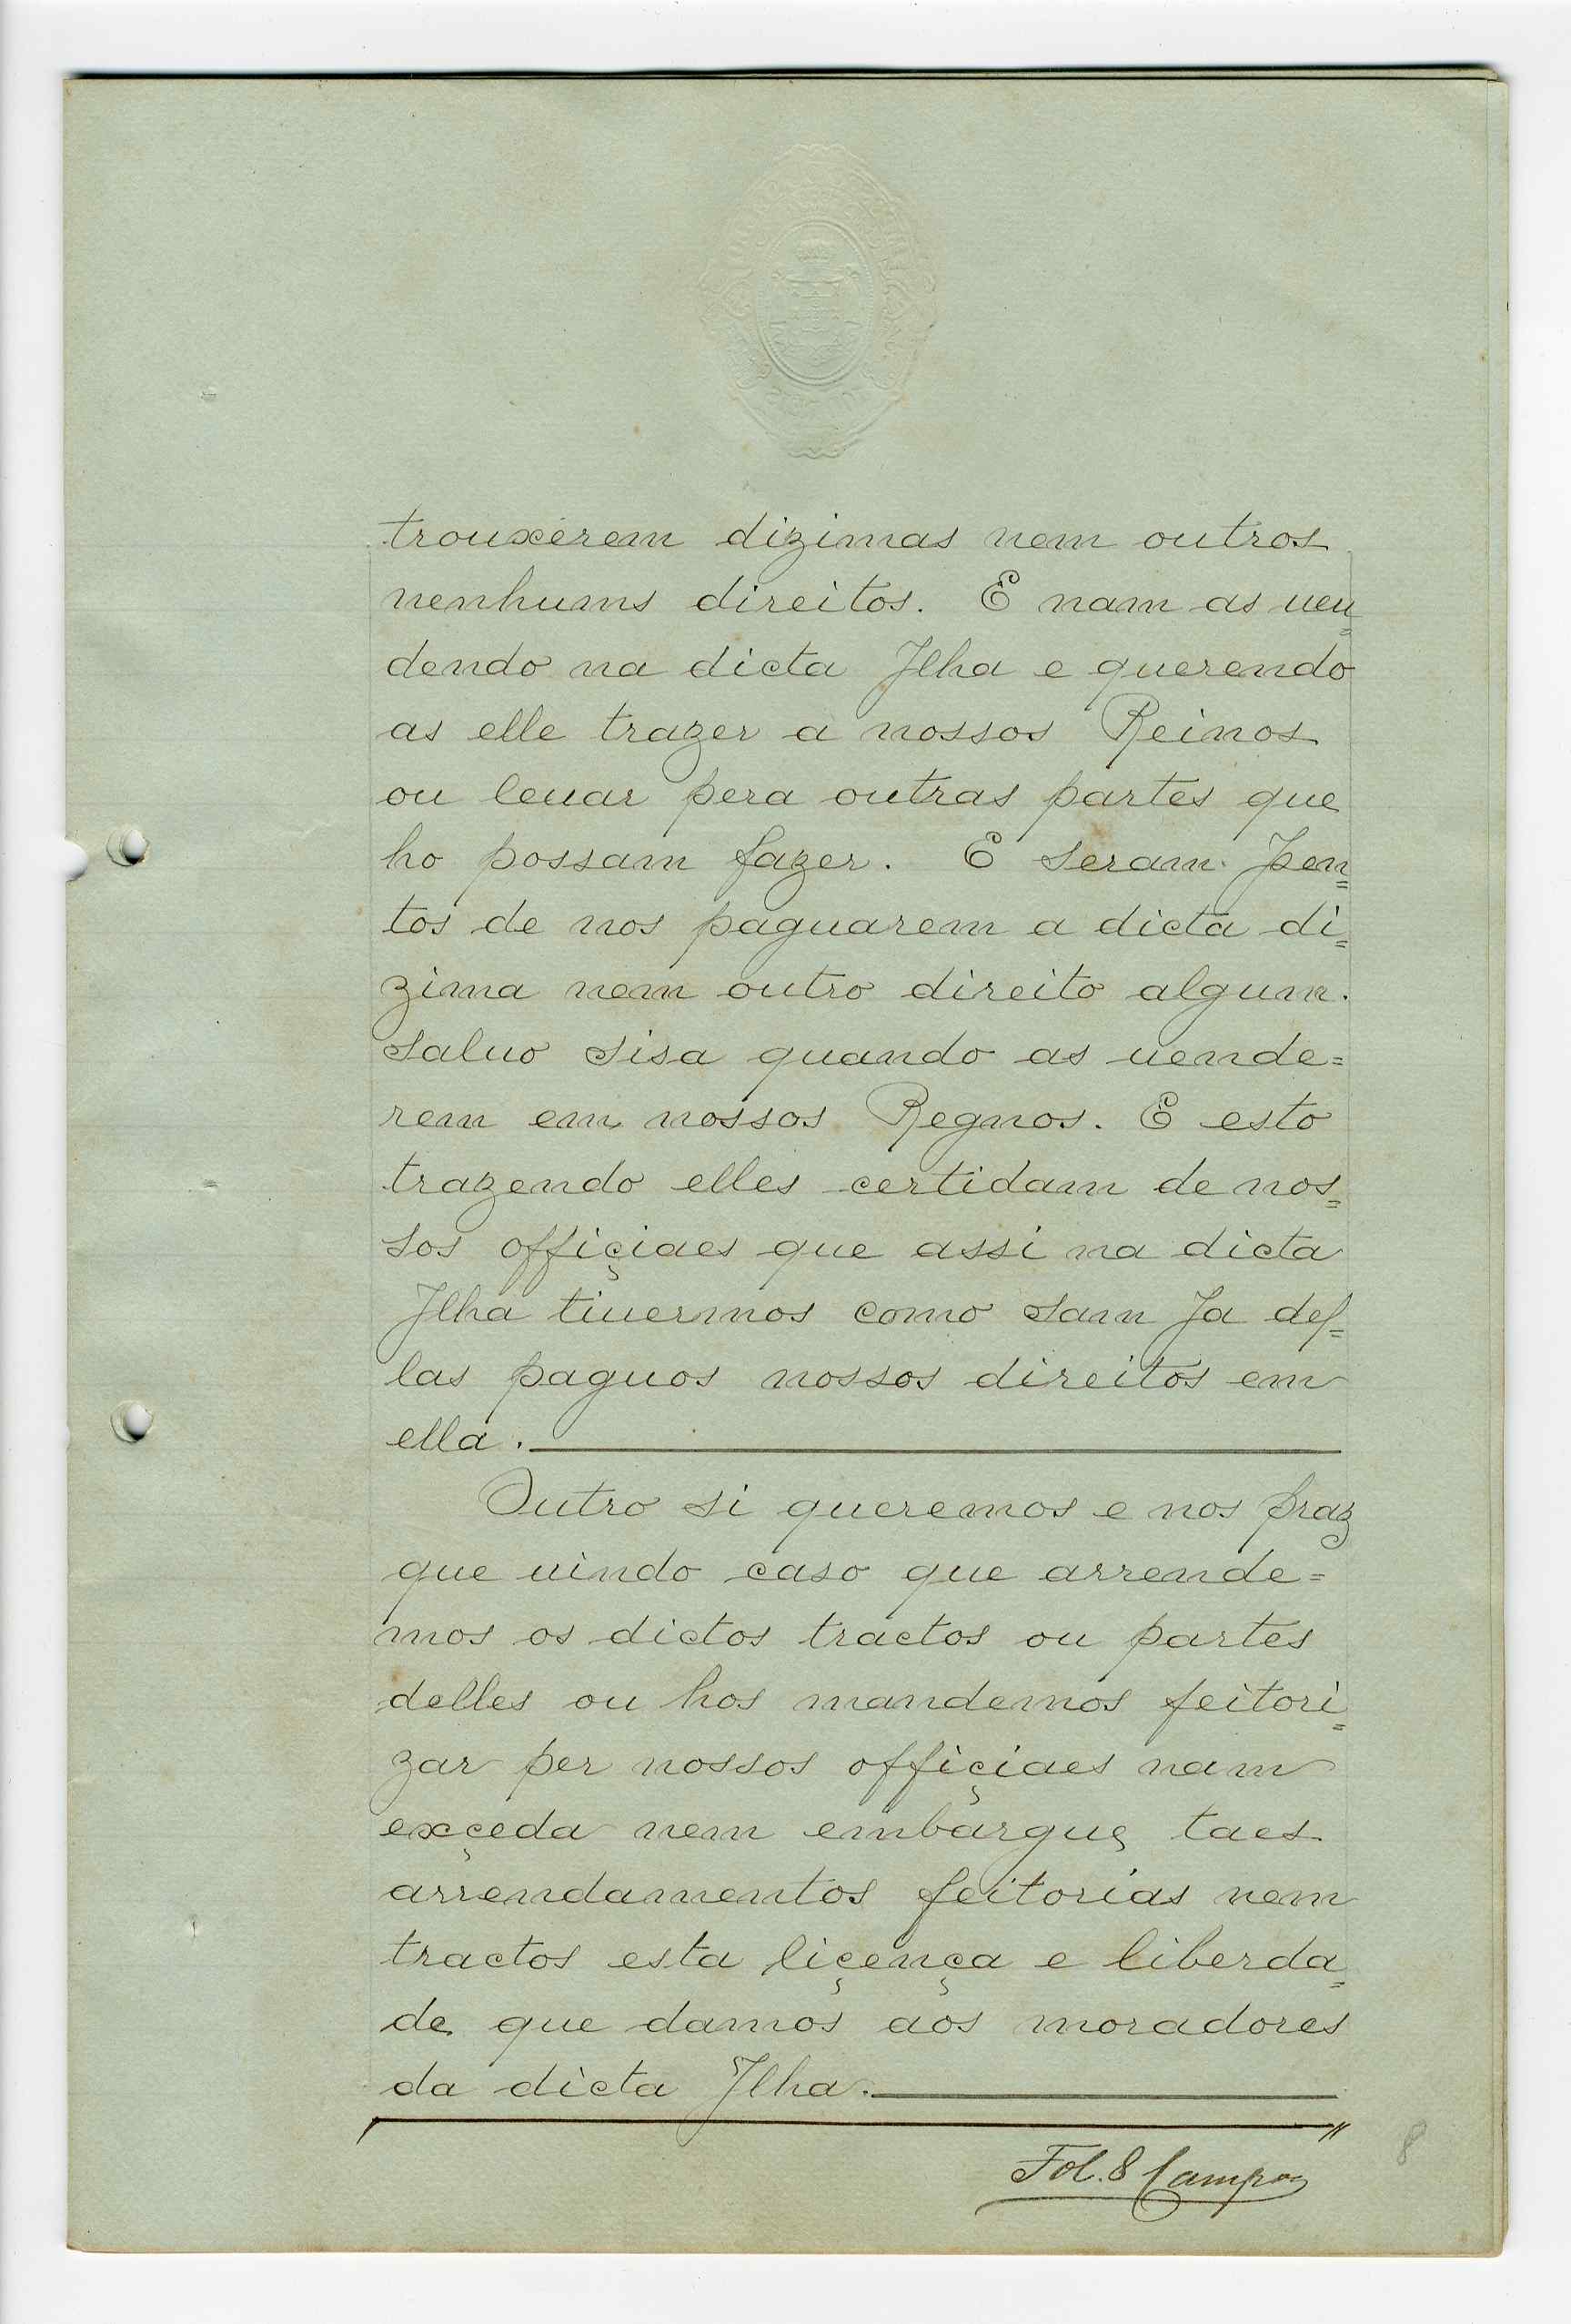 trouxerem dizimas nem outros
nenhums direitos. E nam as uen=
dendo na dicta Jlha e querendo
as elle trazer a nossos Reinos
ou leuar pera outras partes que
ho possam fazer. E seram Jsen=
tos de nos paguarem a dicta di=
zima nem outro direito algum.
saluo sisa quando as uende=
rem em nossos Regnos. E esto
trazendo elles certidam de nos=
sos offiçiaes que assi na dicta
Jlha tiuermos como sam Ja del=
las paguos nossos direitos em
ella.
Outro si queremos e nos praz
que uindo caso que arrende=
mos os dictos tractos ou partes
delles ou hos mandemos feitori=
zar per nossos offiçiaes nam
exçeda nem embargue taes
arrendamentos feitorias nem
tractos esta liçença e liberda=
de que damos aos moradores
da dicta Jlha.
Fol. 8 Campos
8